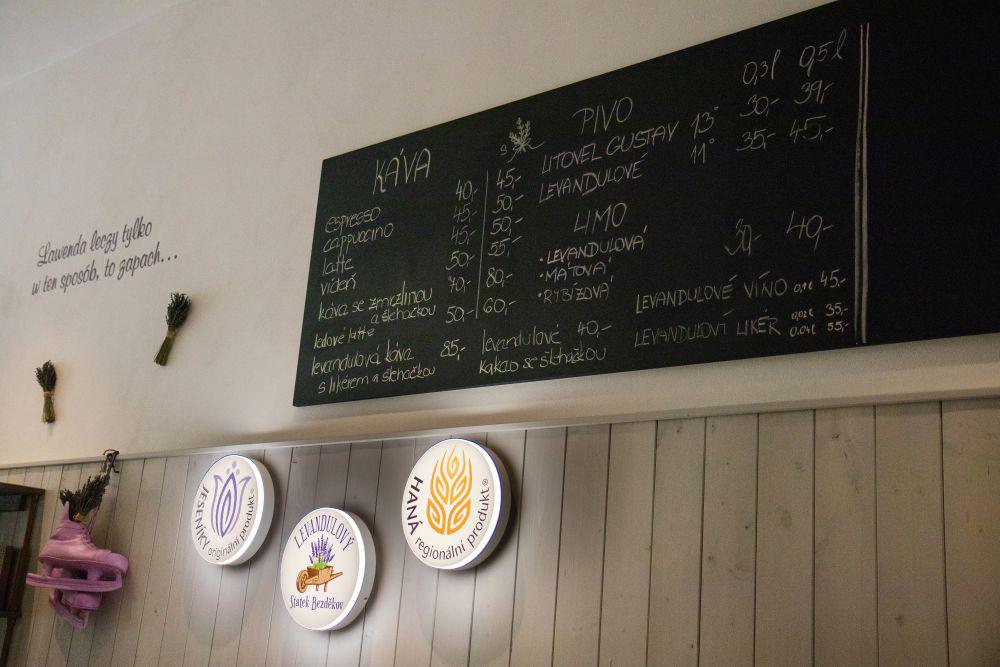 Lawenda leczy tylko
w ten sposób, to zapach...
KÁVA
s
espresso 40,- 45,-
cappuccino 45,- 50,-
latte 45,- 50,-
vídeň 50,- 55,-
káva se zmrzlinou 70,- 80,-
a šlehačkou
ledové latte 50,- 60,-
levandulová káva 85,-
s likérem a šlehačkou
levandulové 40,-
kakao se šlehačkou
PIVO 0,3l 0,5l
LITOVEL GUSTAV 13° 30,- 39,-
LEVANDULOVÉ 11° 35,- 45,-
LIMO
• LEVANDULOVÁ 30,- 40,-
• MÁTOVÁ
• RYBÍZOVÁ
LEVANDULOVÉ VÍNO 0,1l 45,-
LEVANDULOVÝ LIKÉR 0,02l 35,-
0,04l 55,-
JESENÍKY originální produkt®
LEVANDULOVÝ
Statek Bezděkov
HANÁ regionální produkt®